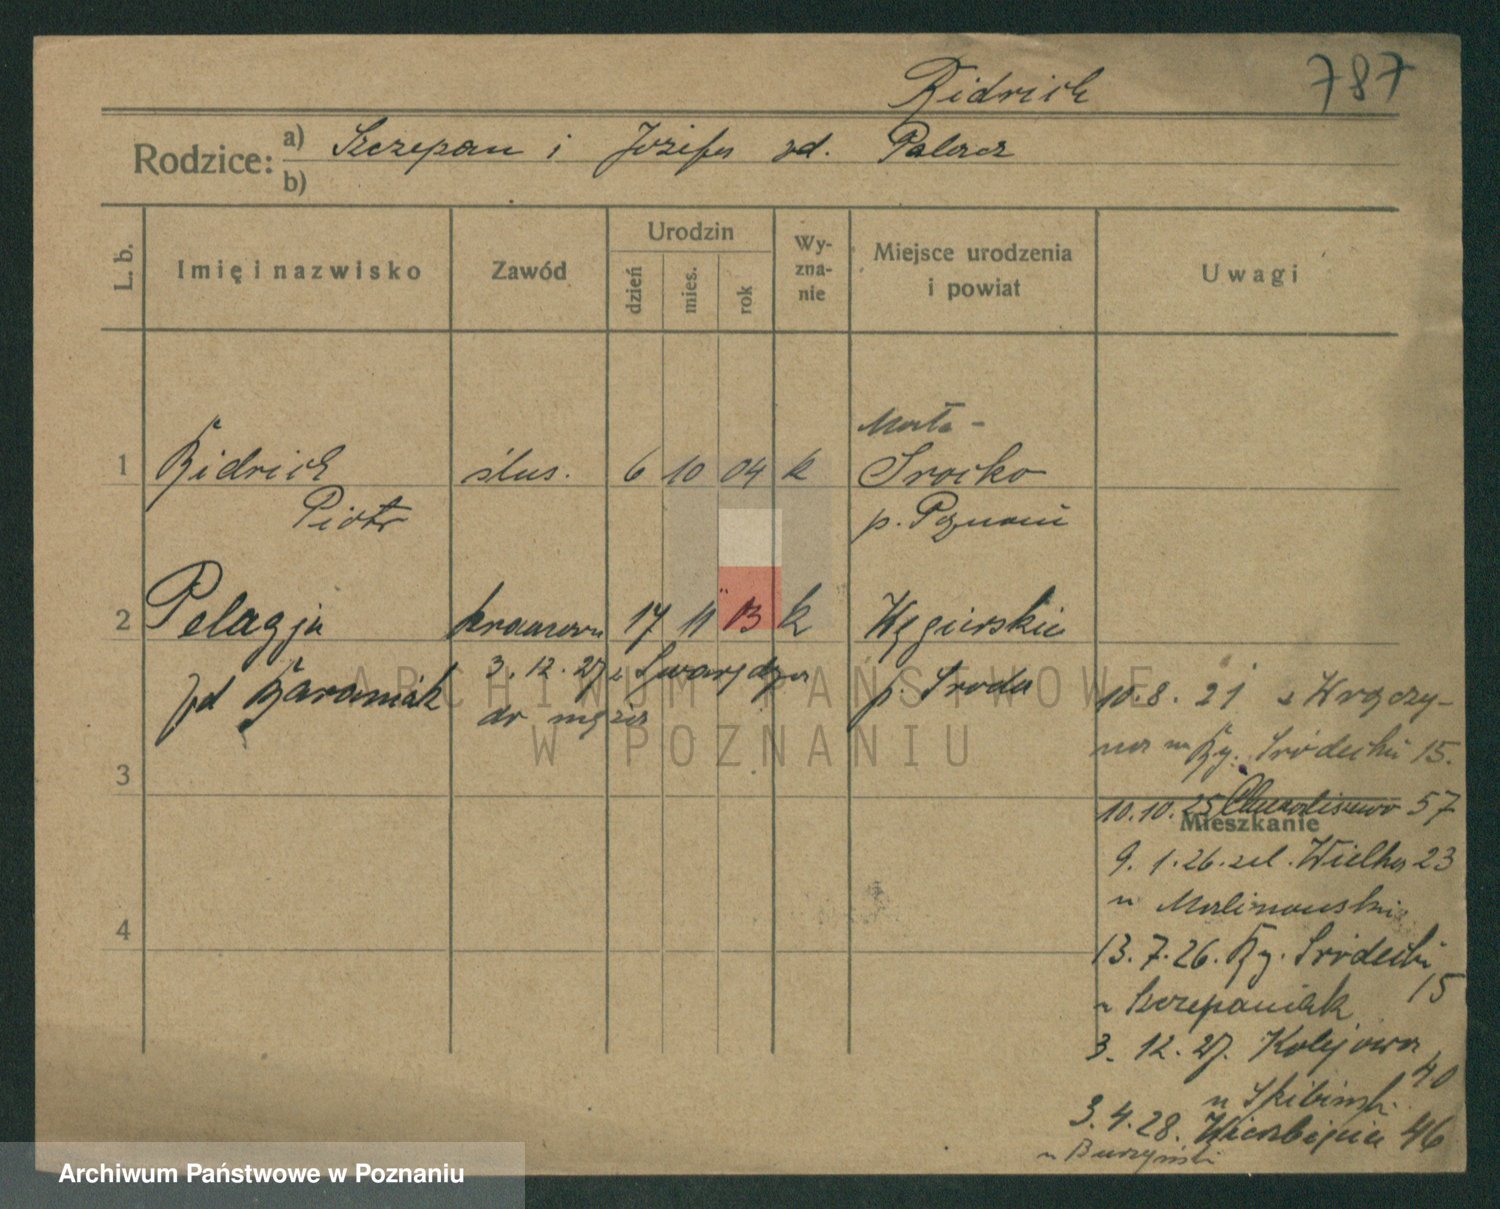 Bidrich 787
Rodzice: a) Szczepan i Józefa zd. Palacz
b)
L. b. Imię i nazwisko Zawód Urodzin dzień mies. rok Wyznanie Miejsce urodzenia i powiat Uwagi
Mała -
1 Bidrich ślus. 6 10 04 k Srocko
Piotr p. Poznań
2 Pelagja 17 11 03 k Węgierskie
zd Baraniak 3. 12. 27 z Swarzędza p. Środa
do męża
10. 8. 21 z Kręczy-
na Ry. Śródecki 15.
3
10. 10. 25 57
Mieszkanie
9. 1. 26. Wielka 23
u Malinowski
4
13. 7. 26. Ry. Śródecki
15
u Szczepaniak
3. 12. 27. Kolejowa
40
u Skibiński
3. 4. 28. Wierzbięcice 46
u Burzyński
ARCHIWUM PAŃSTWOWE
W POZNANIU
Archiwum Państwowe w Poznaniu